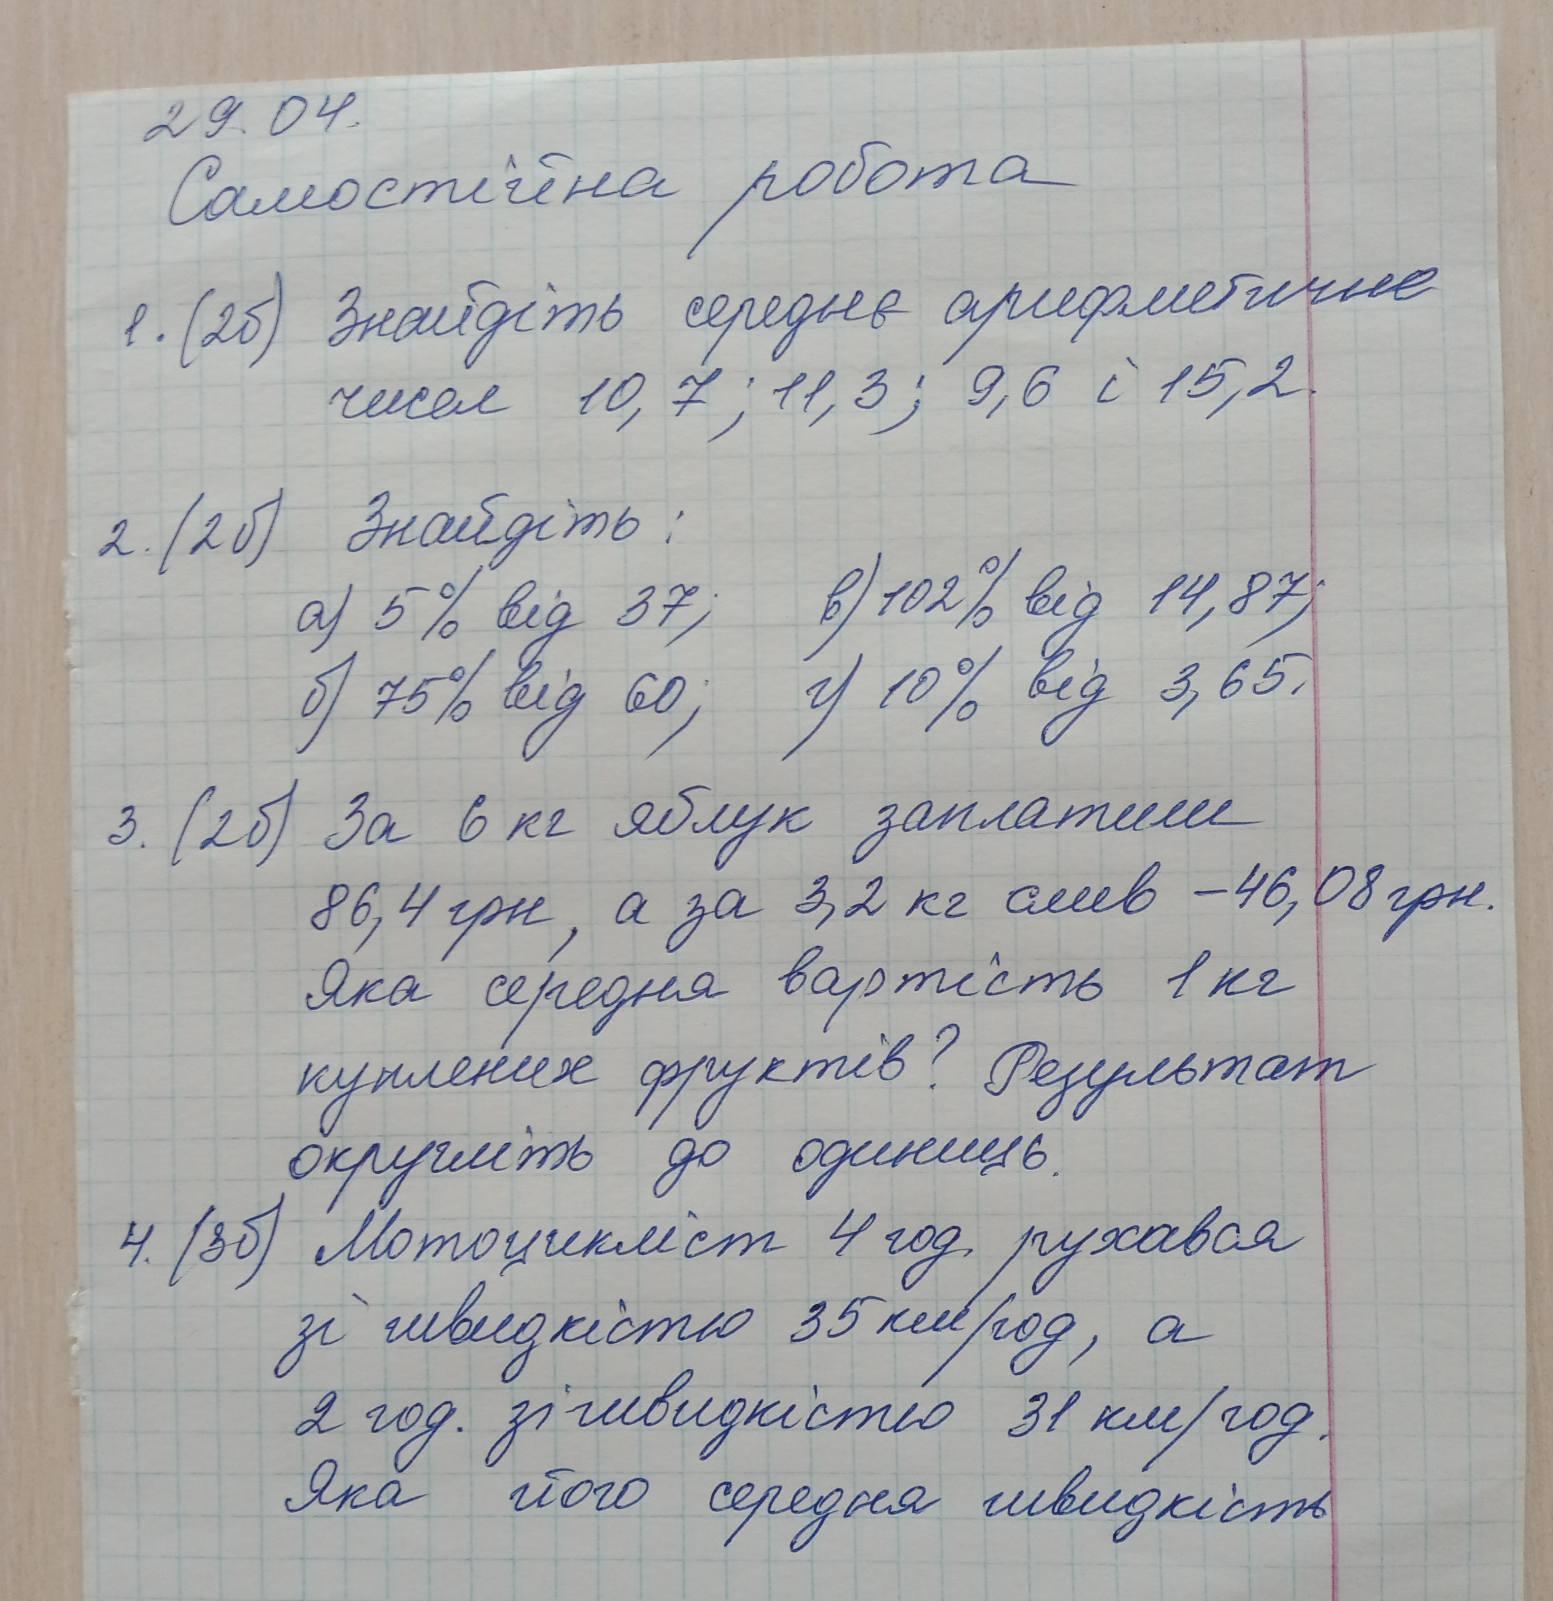 29.04.
Самостійна робота
1. (2б) Знайдіть середнє арифметичне
чисел 10,7; 11,3; 9,6 і 15,2.
2. (2б) Знайдіть:
а) 5% від 37; в) 102% від 14,87;
б) 75% від 60; г) 10% від 3,65.
3. (2б) За 6 кг яблук заплатили
86,4 грн, а за 3,2 кг слив – 46,08 грн.
Яка середня вартість 1 кг
куплених фруктів? Результат
округліть до одиниць.
4. (3б) Мотоцикліст 4 год. рухався
зі швидкістю 35 км/год, а
2 год. зі швидкістю 31 км/год.
Яка його середня швидкість